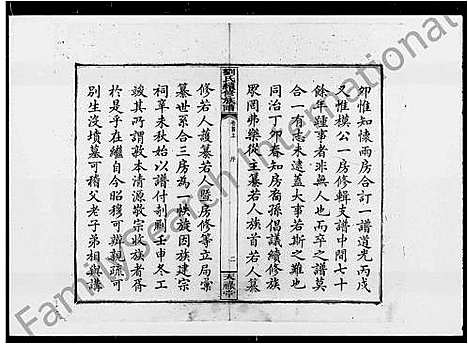 卯惟知懷兩房合訂一譜道光丙戌
又惟模公一房修輯支譜中間七十
餘年蓮事者非無人也而卒之譜莫
合一有志未逮蓋大事若斯之難也
同治丁卯春知房裔孫倡議續修族
眾罔弗樂從主纂若人族首若人纂
劉氏續修族譜
卷首上 序 二
天祿堂
修若人謢纂若人暨房修等立局彙
纂世系合三房為一帙旋因族建宗
祠辜未秋始以譜付剞劂壬申冬工
竣其所謂敦本清源敬宗收族者胥
於是乎在繼自今昭穆可辨親疏可
別生沒墳墓可稽父老子弟相與講
FamilySearch International